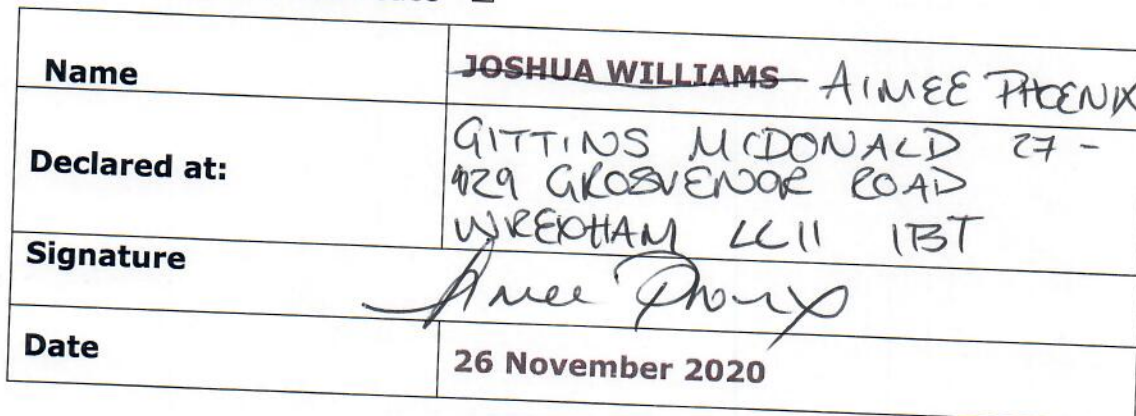 Name JOSHUA WILLIAMS AIMEE PHOENIX
Declared at: GITTINS MCDONALD 27 -
29 GROSVENOR ROAD
WREXHAM LL11 1BT
Signature Aimee Phoenix
Date 26 November 2020